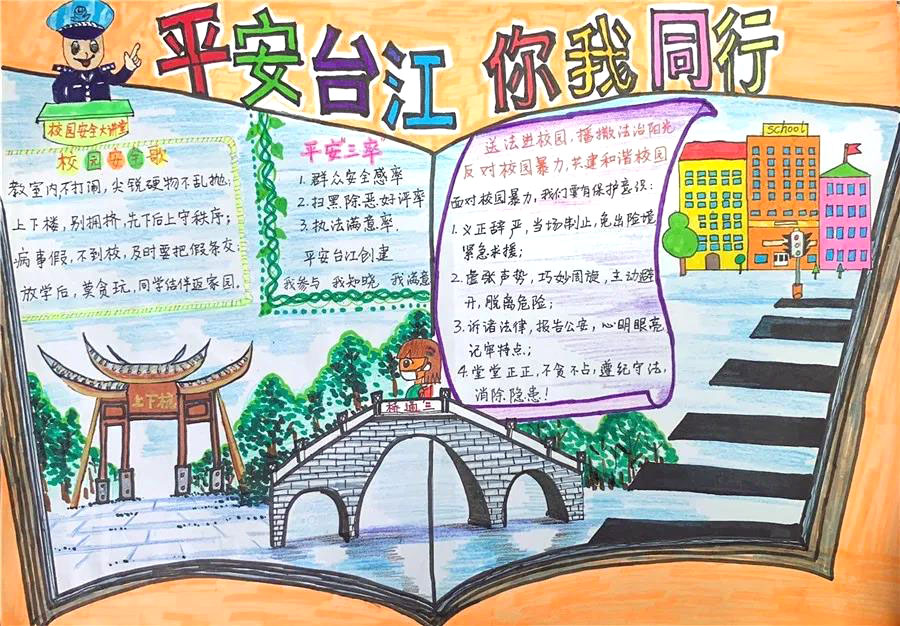 平安台江 你我同行
校园安全大讲堂
校园安全歌
教室内,不打闹,尖锐硬物不乱抛,
上下楼,别拥挤,先下后上守秩序;
病事假,不到校,及时要把假条交
放学后,莫贪玩,同学结伴返家园.
平安"三率"
1.群众安全感率
2.扫黑除恶好评率
3.执法满意率.
平安台江创建
我参与 我知晓 我满意
送法进校园,播撒法治阳光
反对校园暴力,共建和谐校园
面对校园暴力,我们要有保护意识:
1.义正辞严,当场制止,免出险境
紧急求援;
2.虚张声势,巧妙周旋,主动避
开,脱离危险;
3.诉诸法律,报告公安,心明眼亮
记牢特点;
4.堂堂正正,不贪不占,遵纪守法,
消除隐患!
school
上下杭
桥通三